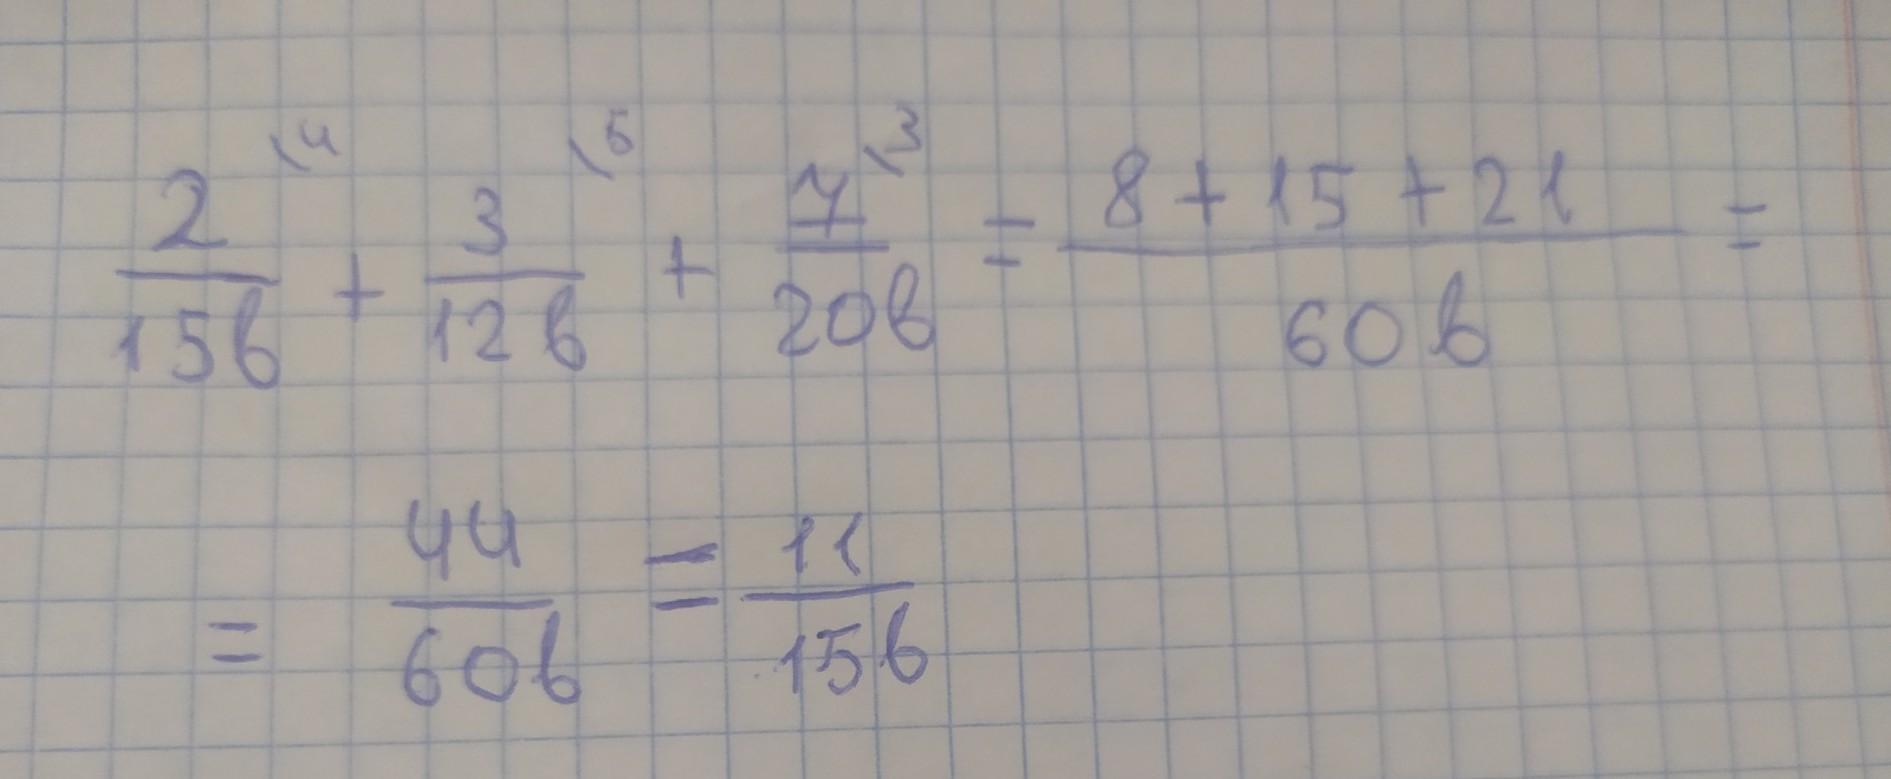 2/15b \4 + 3/12b \5 + 7/20b \3 = 8 + 15 + 21/60b =
= 44/60b = 11/15b